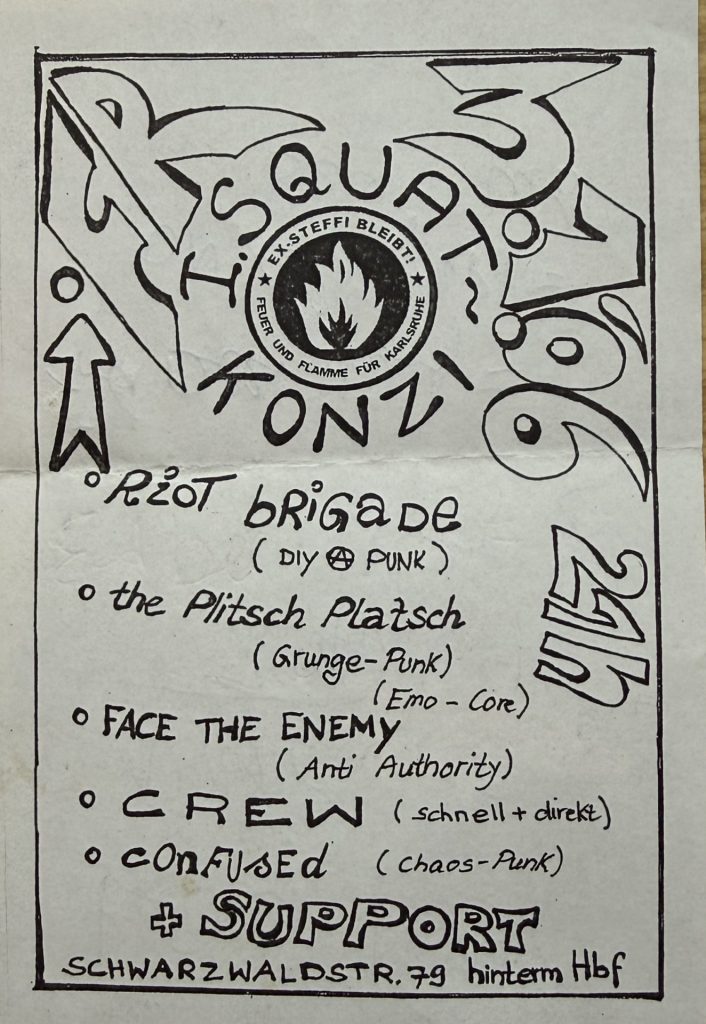 FR.
3.7.'06
21h
1. SQUAT~
KONZI
EX-STEFFI BLEIBT!
FEUER UND FLAMME FÜR KARLSRUHE
RiOT bRiGaDE
(DIY Ⓐ PUNK)
the Plitsch Platsch
(Grunge-Punk)
(Emo-Core)
FACE THE ENEMY
(Anti Authority)
CREW (schnell + direkt)
cOnFUsEd (Chaos-Punk)
+ SUPPORT
SCHWARZWALDSTR. 79 hinterm Hbf